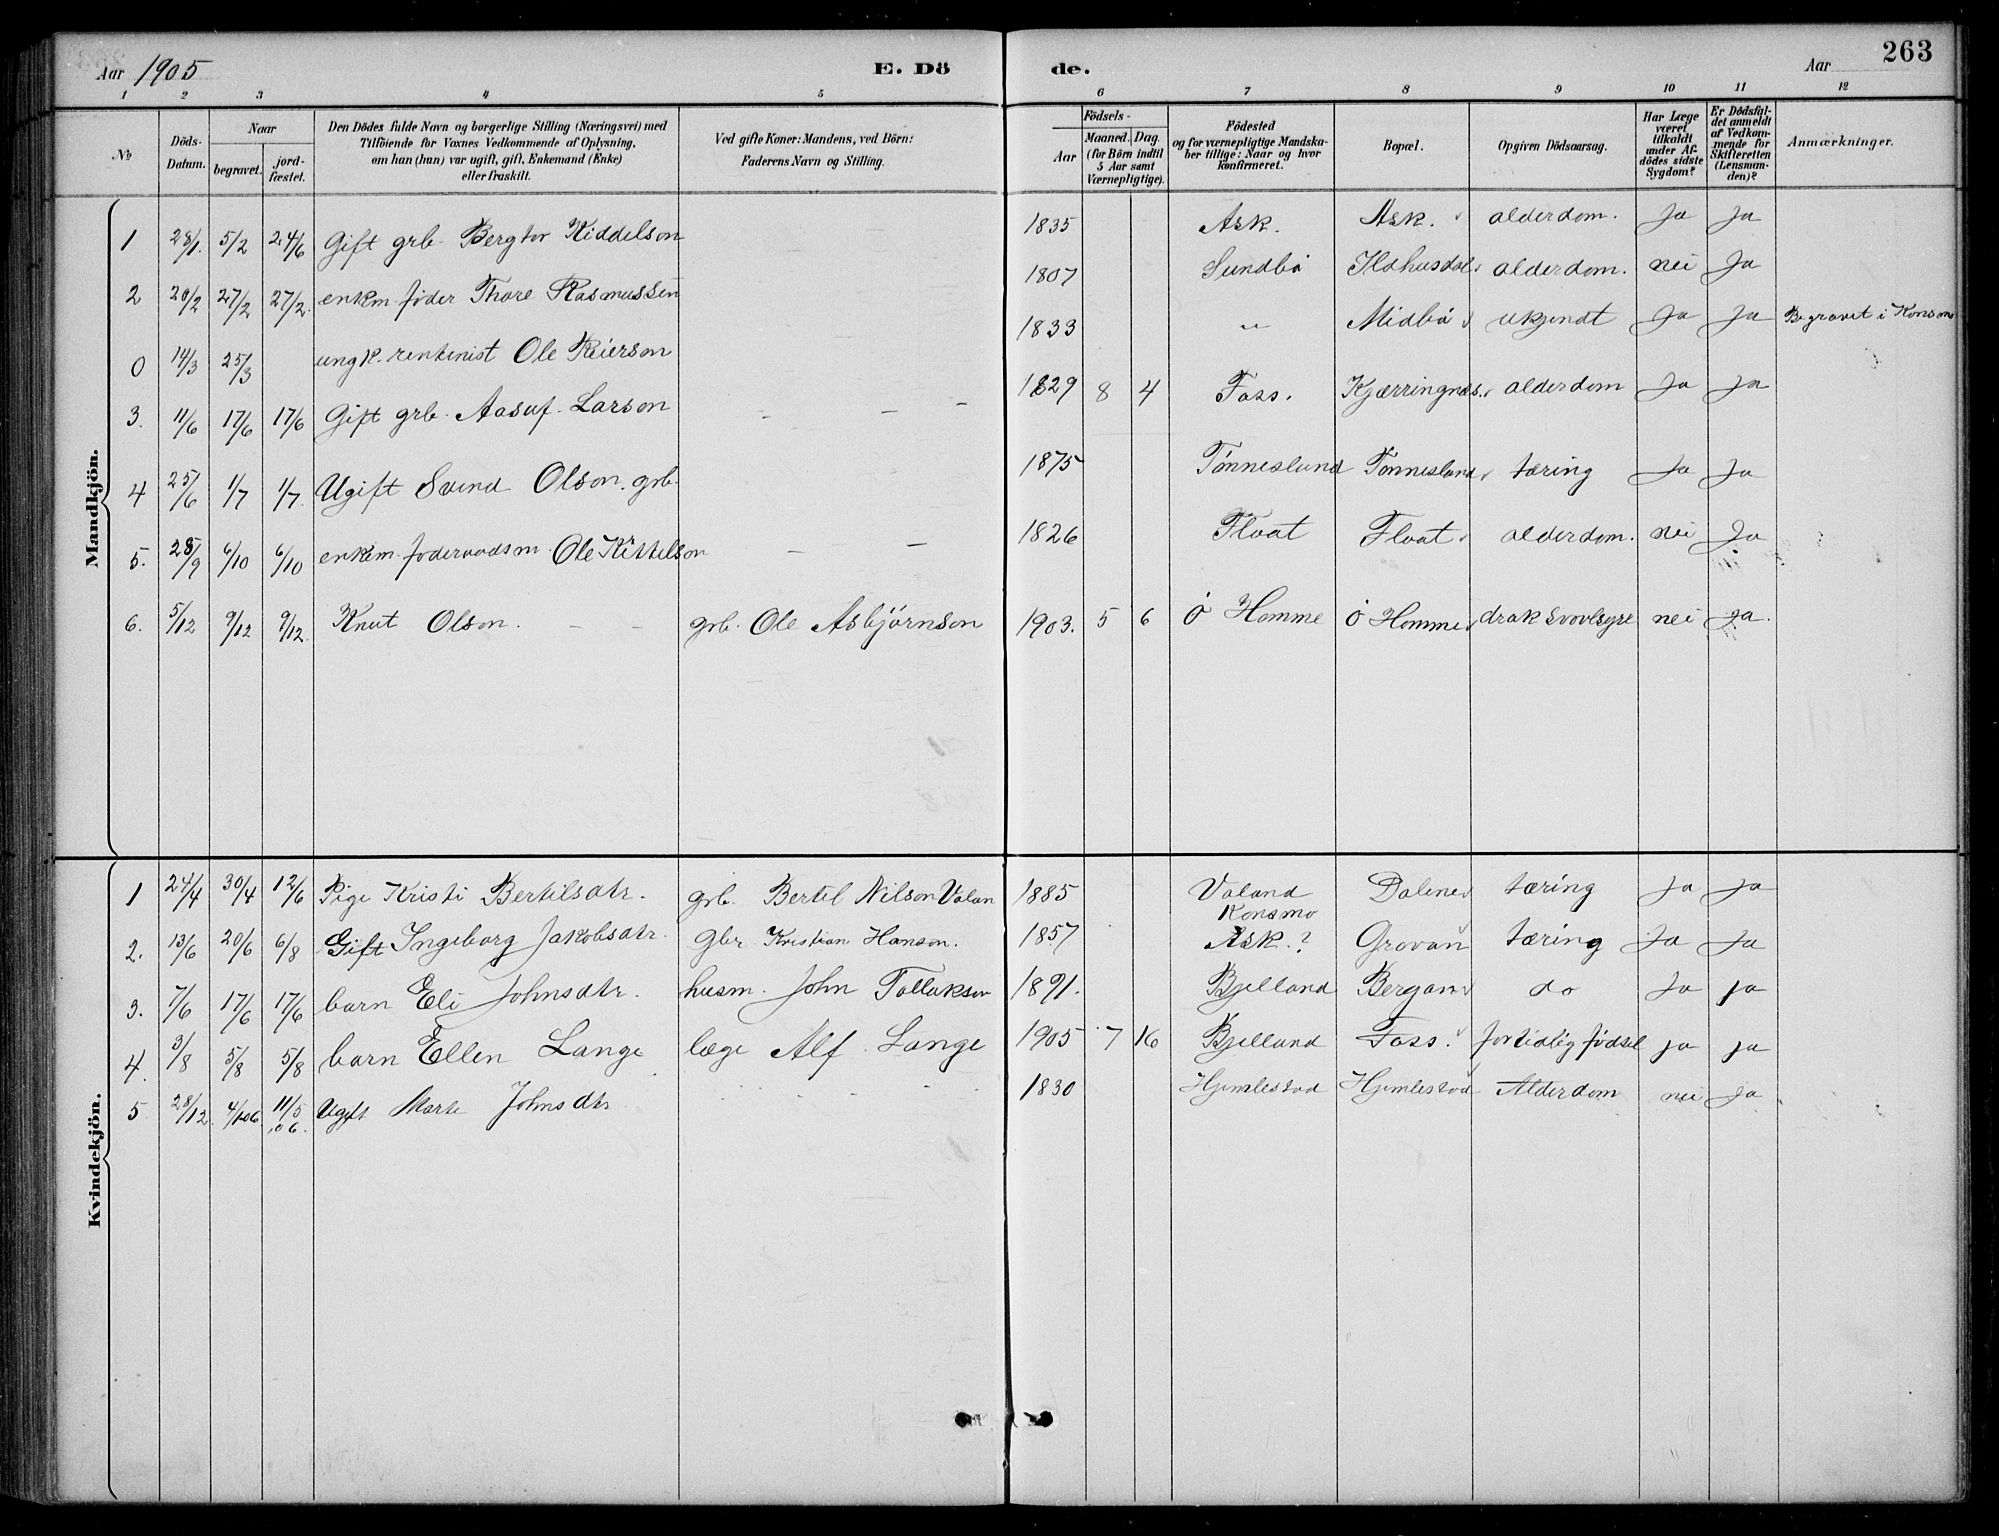 263
Aar 1905 E. Dö de. Aar
1 2 3 4 5 6 7 8 9 10 11 12
No
Döds-Datum.
Naar
begravet.
jord-fæstet.
Den Dödes fulde Navn og borgerlige Stilling (Næringsvei) med
Tilföiende for Voxnes Vedkommende af Oplysning,
om han (hun) var ugift, gift, Enkemand (Enke)
eller fraskilt.
Ved gifte Koner: Mandens, ved Börn:
Faderens Navn og Stilling.
Födsels-
Aar
Maaned. Dag.
(for Börn indtil
5 Aar samt
Værnepligtige).
Födested
og for værnepligtige Mandska-
ber tillige: Naar og hvor
konfirmeret.
Bopæl.
Opgiven Dödsaarsag.
Har Læge
været
tilkaldt
under Af-
dödes sidste
Sygdom?
Er Dödsfal-
det anmeldt
af Vedkom-
mende for
Skifteretten
(Lensman-
den)?
Anmærkninger.
Mandkjön.
1 28/1. 5/2 24/6 Gift grb. Bergtor Kiddelson 1835 Ask. Ask. alderdom. Ja Ja
2 20/2 27/2 27/2. enkm. föder Thore Rasmussen 1807 Sundbö Ildhusdal alderdom. nei Ja
0 14/3 25/3 ungk. rentenist Ole Reierson 1833 " Midbö ukjendt Ja Ja Begravet i Konsmo
3. 11/6 17/6 17/6 Gift grb. Aasuf Larson - - - 1829 8 4 Foss. Kjærringnes. alderdom Ja Ja
4 25/6 1/7 1/7 Ugift Svend Olson. grb. 1875 Tønnesland Tønnesland tæring Ja Ja
5. 28/9 6/10 6/10 enkm. foderaadsm. Ole Kittelson - - 1826 Float Float alderdom. nei Ja
6. 5/12 9/12 9/12. Knut Olson. - - grb. Ole Asbjørnson 1903. 5 6 Ö Homme Ö Homme drak Svovlsyre nei Ja.
Kvindekjön.
1 24/4 30/4 12/6 Pige Kristi Bertilsdtr. grb. Bertil Nilson Valan 1885 Valand Konsmo Dalene tæring Ja Ja
2. 13/6 20/6 6/8 Gift Ingeborg Jakobsdtr. gbr Kristian Hanson. 1857 Ask.? Grovan tæring Ja Ja
3. 7/6 17/6 17/6 barn Eli Johnsdtr. husm. John Tollakson 1891. Bjelland Bergan do Ja ja
4. 3/8 5/8 5/8 barn Ellen Lange læge Alf Lange 1905 7 16 Bjelland Foss. fortidlig fødsel ja ja
5 28/12 4/1 06 11/5 06. Ugift Marte Johnsdtr 1830 Hjemlestad Hjemlestad Alderdom nei Ja